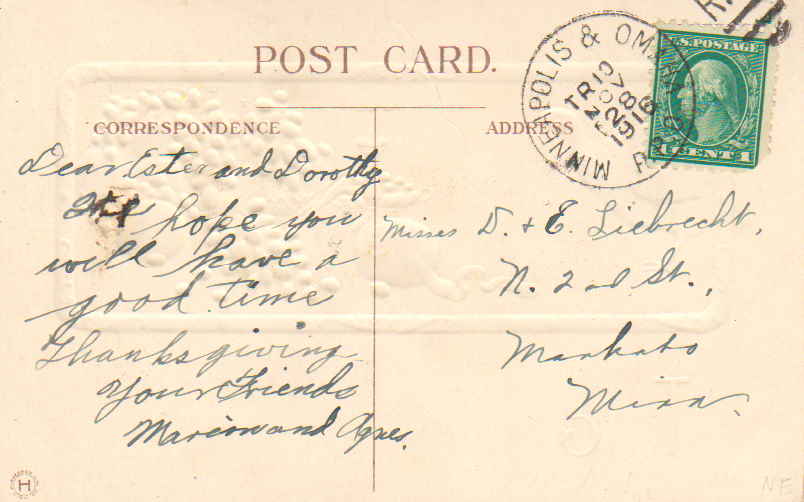 POST CARD.
CORRESPONDENCE
ADDRESS
MINNEAPOLIS & OMAHA
R.P.O.
TR 19
NOV
28
1916
U.S. POSTAGE
1 CENT 1
Dear Ester and Dorothy
hope you
will have a
good time
Thanksgiving
Your Friends
Marion and Agnes.
Misses D. & E. Liebrecht,
N. 2nd St.,
Mankato
Minn.
H
NE